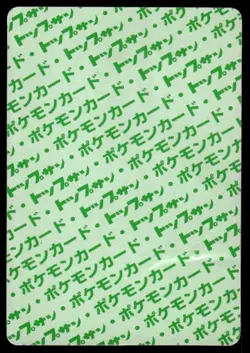 トップサン・ポケモンカード
ポケモンカード・トップサン
ポケモンカード・トップサン
トップサン・ポケモンカード
トップサン・ポケモンカード
トップサン・ポケモンカード
ポケモンカード・トップサン
ポケモンカード・トップサン
ポケモンカード・トップサン
トップサン・ポケモンカード